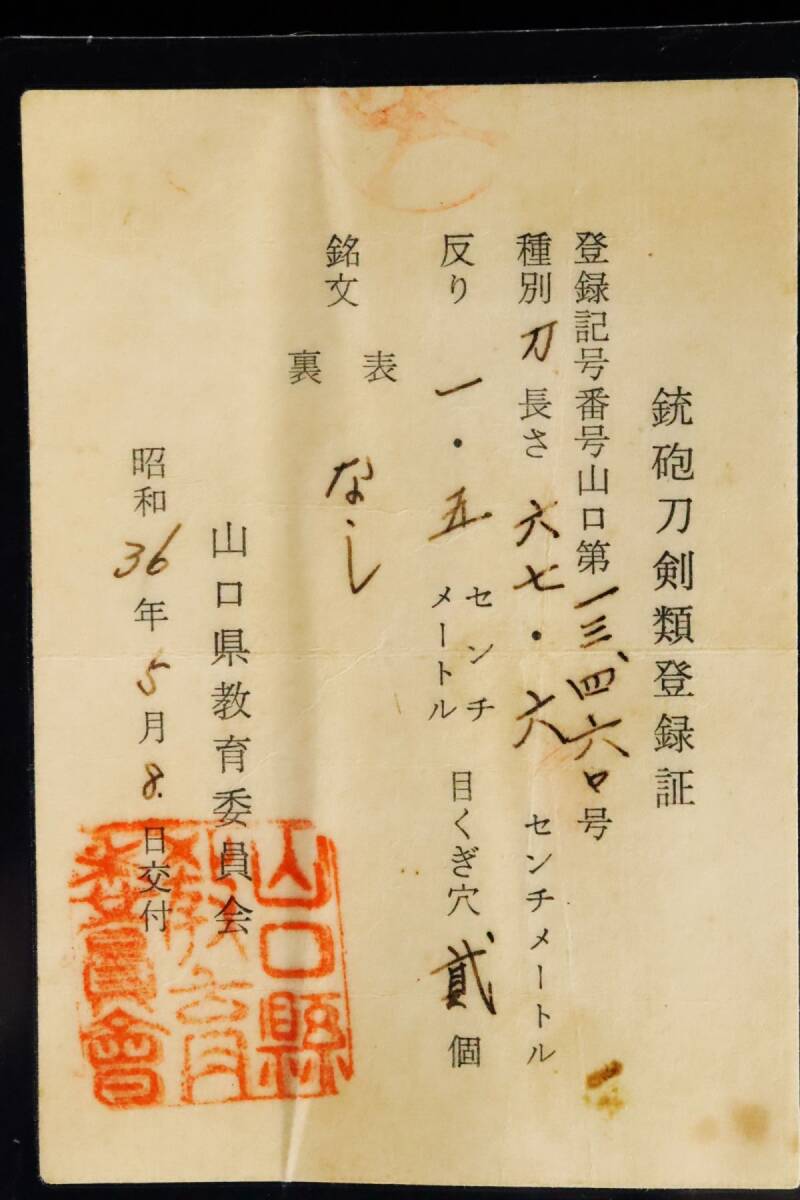 銃砲刀剣類登録証
登録記号番号山口第一三、四六〇号
種別 刀 長さ 六七・六 センチメートル
反り 一・五 センチメートル 目くぎ穴 貳 個
銘文 表 なし
裏
山口県教育委員会
昭和36年5月8日交付
山口縣
教育
委員會